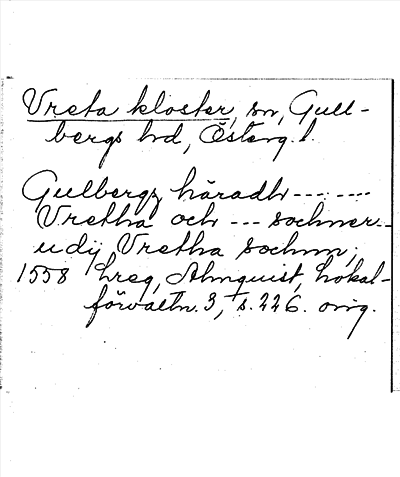 Vreta kloster, sn, Gull-
bergs hd, Österg. l.
Gulbergz häradh - - - - - - -
Vretha och - - - sochner - -
udij Vretha sochnn;
1558 hreg, Almquist, Lokal-
förvaltn. 3, s. 226. orig.